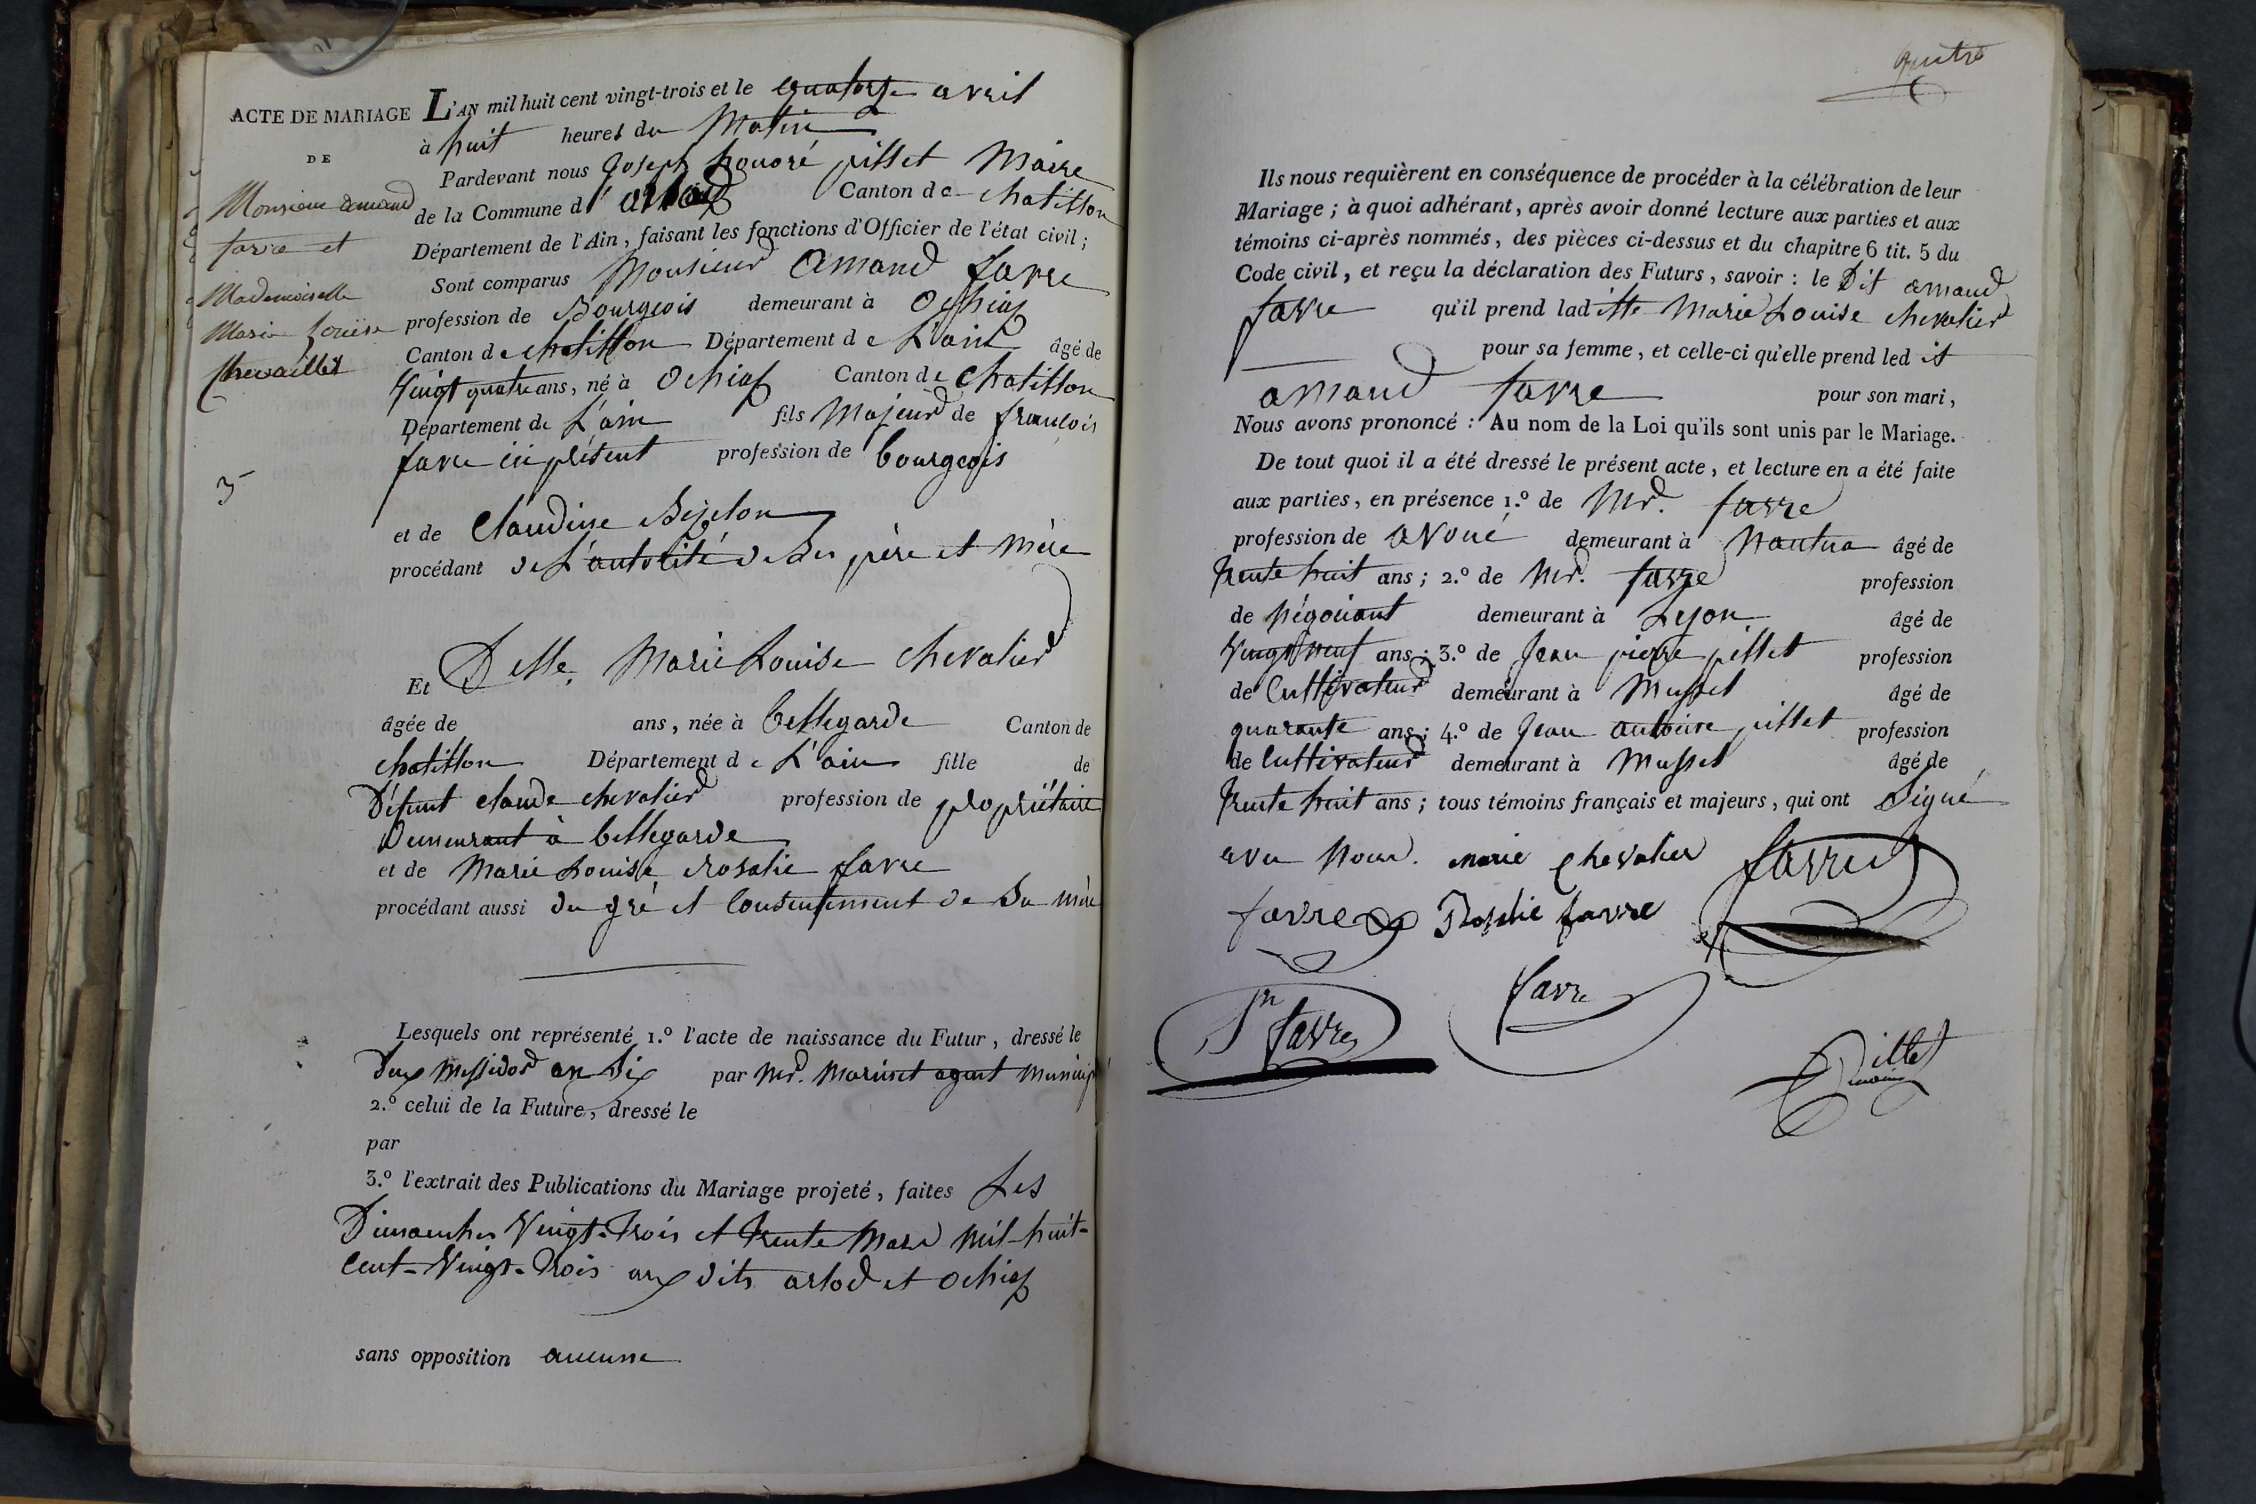 ACTE DE MARIAGE
DE
Monsieur amand
favre et
Mademoiselle
Marie Louise
Chevallier
3
L'AN mil huit cent vingt-trois et le quatorze avril
à huit heures du Matin
Pardevant nous Joseph honoré pillet Maire
de la Commune d'arlod Canton de chatillon
Département de l'Ain, faisant les fonctions d'Officier de l'état civil;
Sont comparus Monsieur amand favre
profession de Bourgeois demeurant à Ochiaz
Canton de chatillon Département de L'ain âgé de
Vingt quatre ans, né à Ochiaz Canton de chatillon
Département de L'ain fils Majeur de françois
favre ici présent profession de bourgeois
et de Claudine
procédant de L'autorité de Ses père et mère
Et Delle. Marie Louise chevalier
âgée de ans, née à bellegarde Canton de
chatillon Département de L'ain fille de
Défunt claude chevalier profession de propriétaire
Demeurant à bellegarde
et de Marie Louise rosalie favre
procédant aussi du gré et Consentement de Sa mère
Lesquels ont représenté 1.º l'acte de naissance du Futur, dressé le
Deux Messidor an Six par Mr. Marinet agent Municipal
2.º celui de la Future, dressé le
par
3.º l'extrait des Publications du Mariage projeté, faites Les
Dimanches Vingt-Trois et trente Mars Mil-huit-
Cent-Vingt-Trois aux dits arlod et Ochiaz
sans opposition aucune
Ils nous requièrent en conséquence de procéder à la célébration de leur
Mariage; à quoi adhérant, après avoir donné lecture aux parties et aux
témoins ci-après nommés, des pièces ci-dessus et du chapitre 6 tit. 5 du
Code civil, et reçu la déclaration des Futurs, savoir: le Dit amand
favre qu'il prend ladite Marie Louise chevalier
pour sa femme, et celle-ci qu'elle prend ledit
amand favre pour son mari,
Nous avons prononcé: Au nom de la Loi qu'ils sont unis par le Mariage.
De tout quoi il a été dressé le présent acte, et lecture en a été faite
aux parties, en présence 1.º de Mr. favre
profession de avoué demeurant à Nantua âgé de
trente huit ans; 2.º de Mr. favre profession
de Négociant demeurant à Lyon âgé de
Vingt neuf ans; 3.º de Jean pierre pillet profession
de Cultivateur demeurant à Mussel âgé de
quarante ans; 4.º de Jean antoine pillet profession
de Cultivateur demeurant à Mussel âgé de
trente huit ans; tous témoins français et majeurs, qui ont Signé
avec Nous. marie chevalier favre
favre Rosalie favre
favre
Jn favre
Pillet
maire